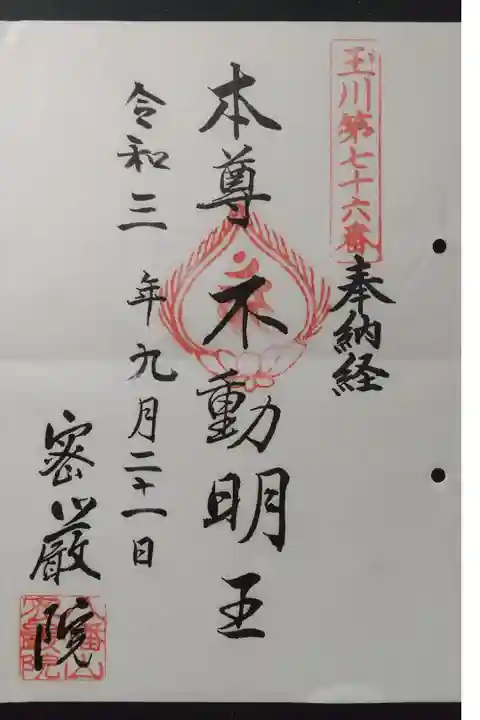 玉川第七十六番
奉納経
本尊不動明王
令和三年九月二十一日
密厳院